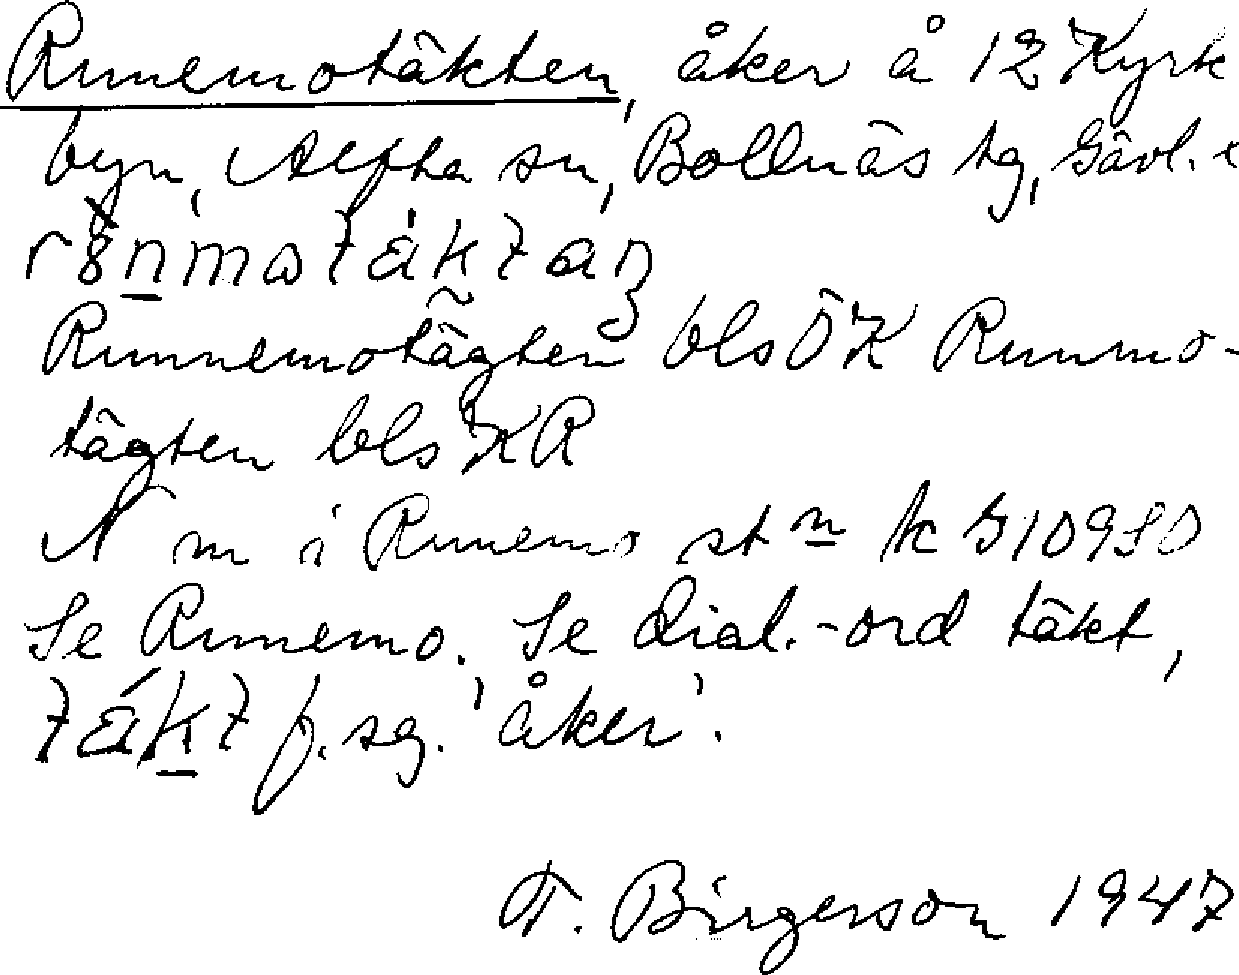 Runemotäkten, åker å 12 Kyrk
byn, Alfta sn, Bollnäs tg, Gävl.
Runnemotägten bls ÖK Runmo-
tägten bls KR
N m i Runemo st n k G 10980
Se Runemo. Se dial.-ord täkt,
f. sg. 'åker'.
T. Birgerson 1947